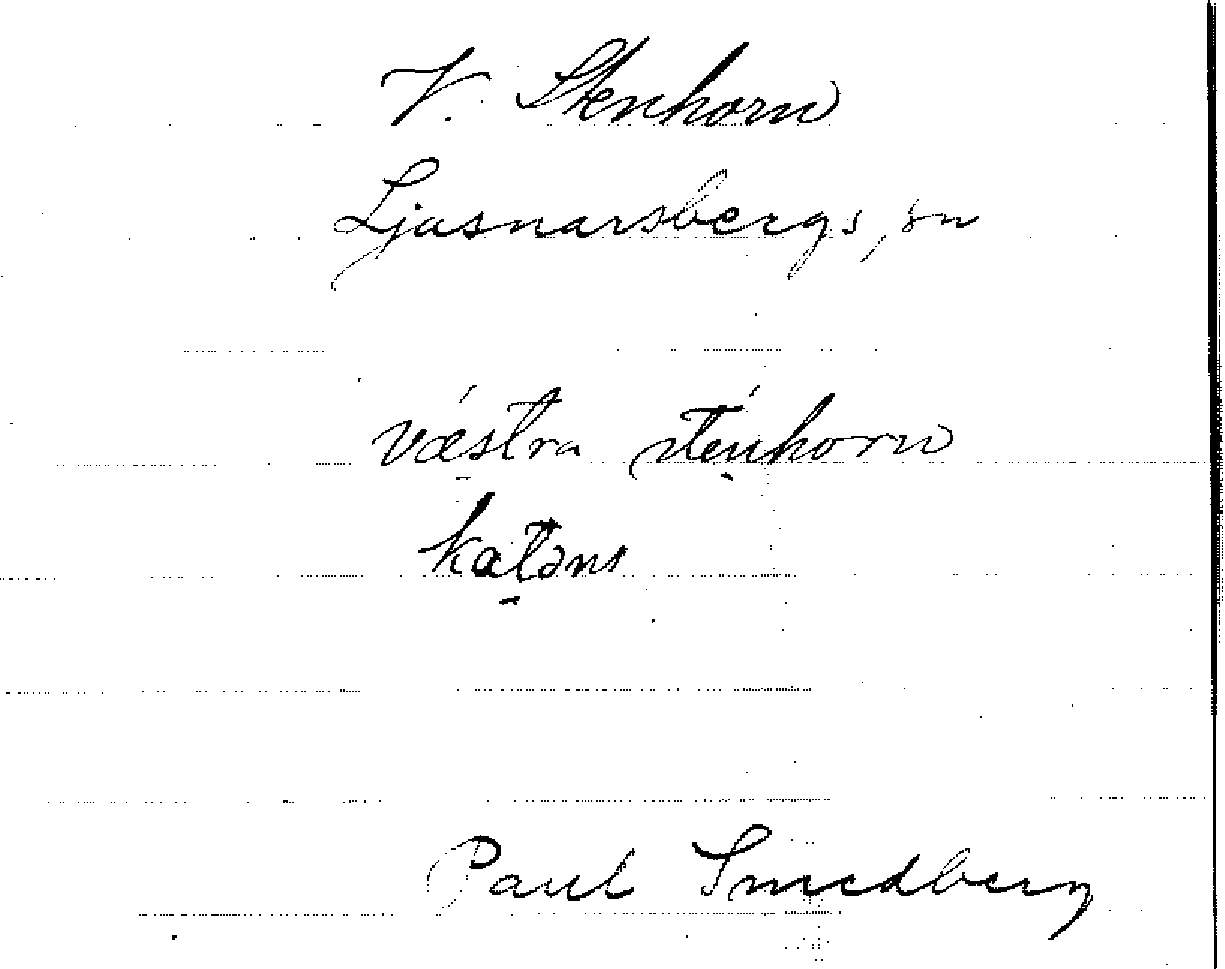 V. Stenhorn
Ljusnarsbergs, sn
västra stenhorn
katəns
Paul Smedberg